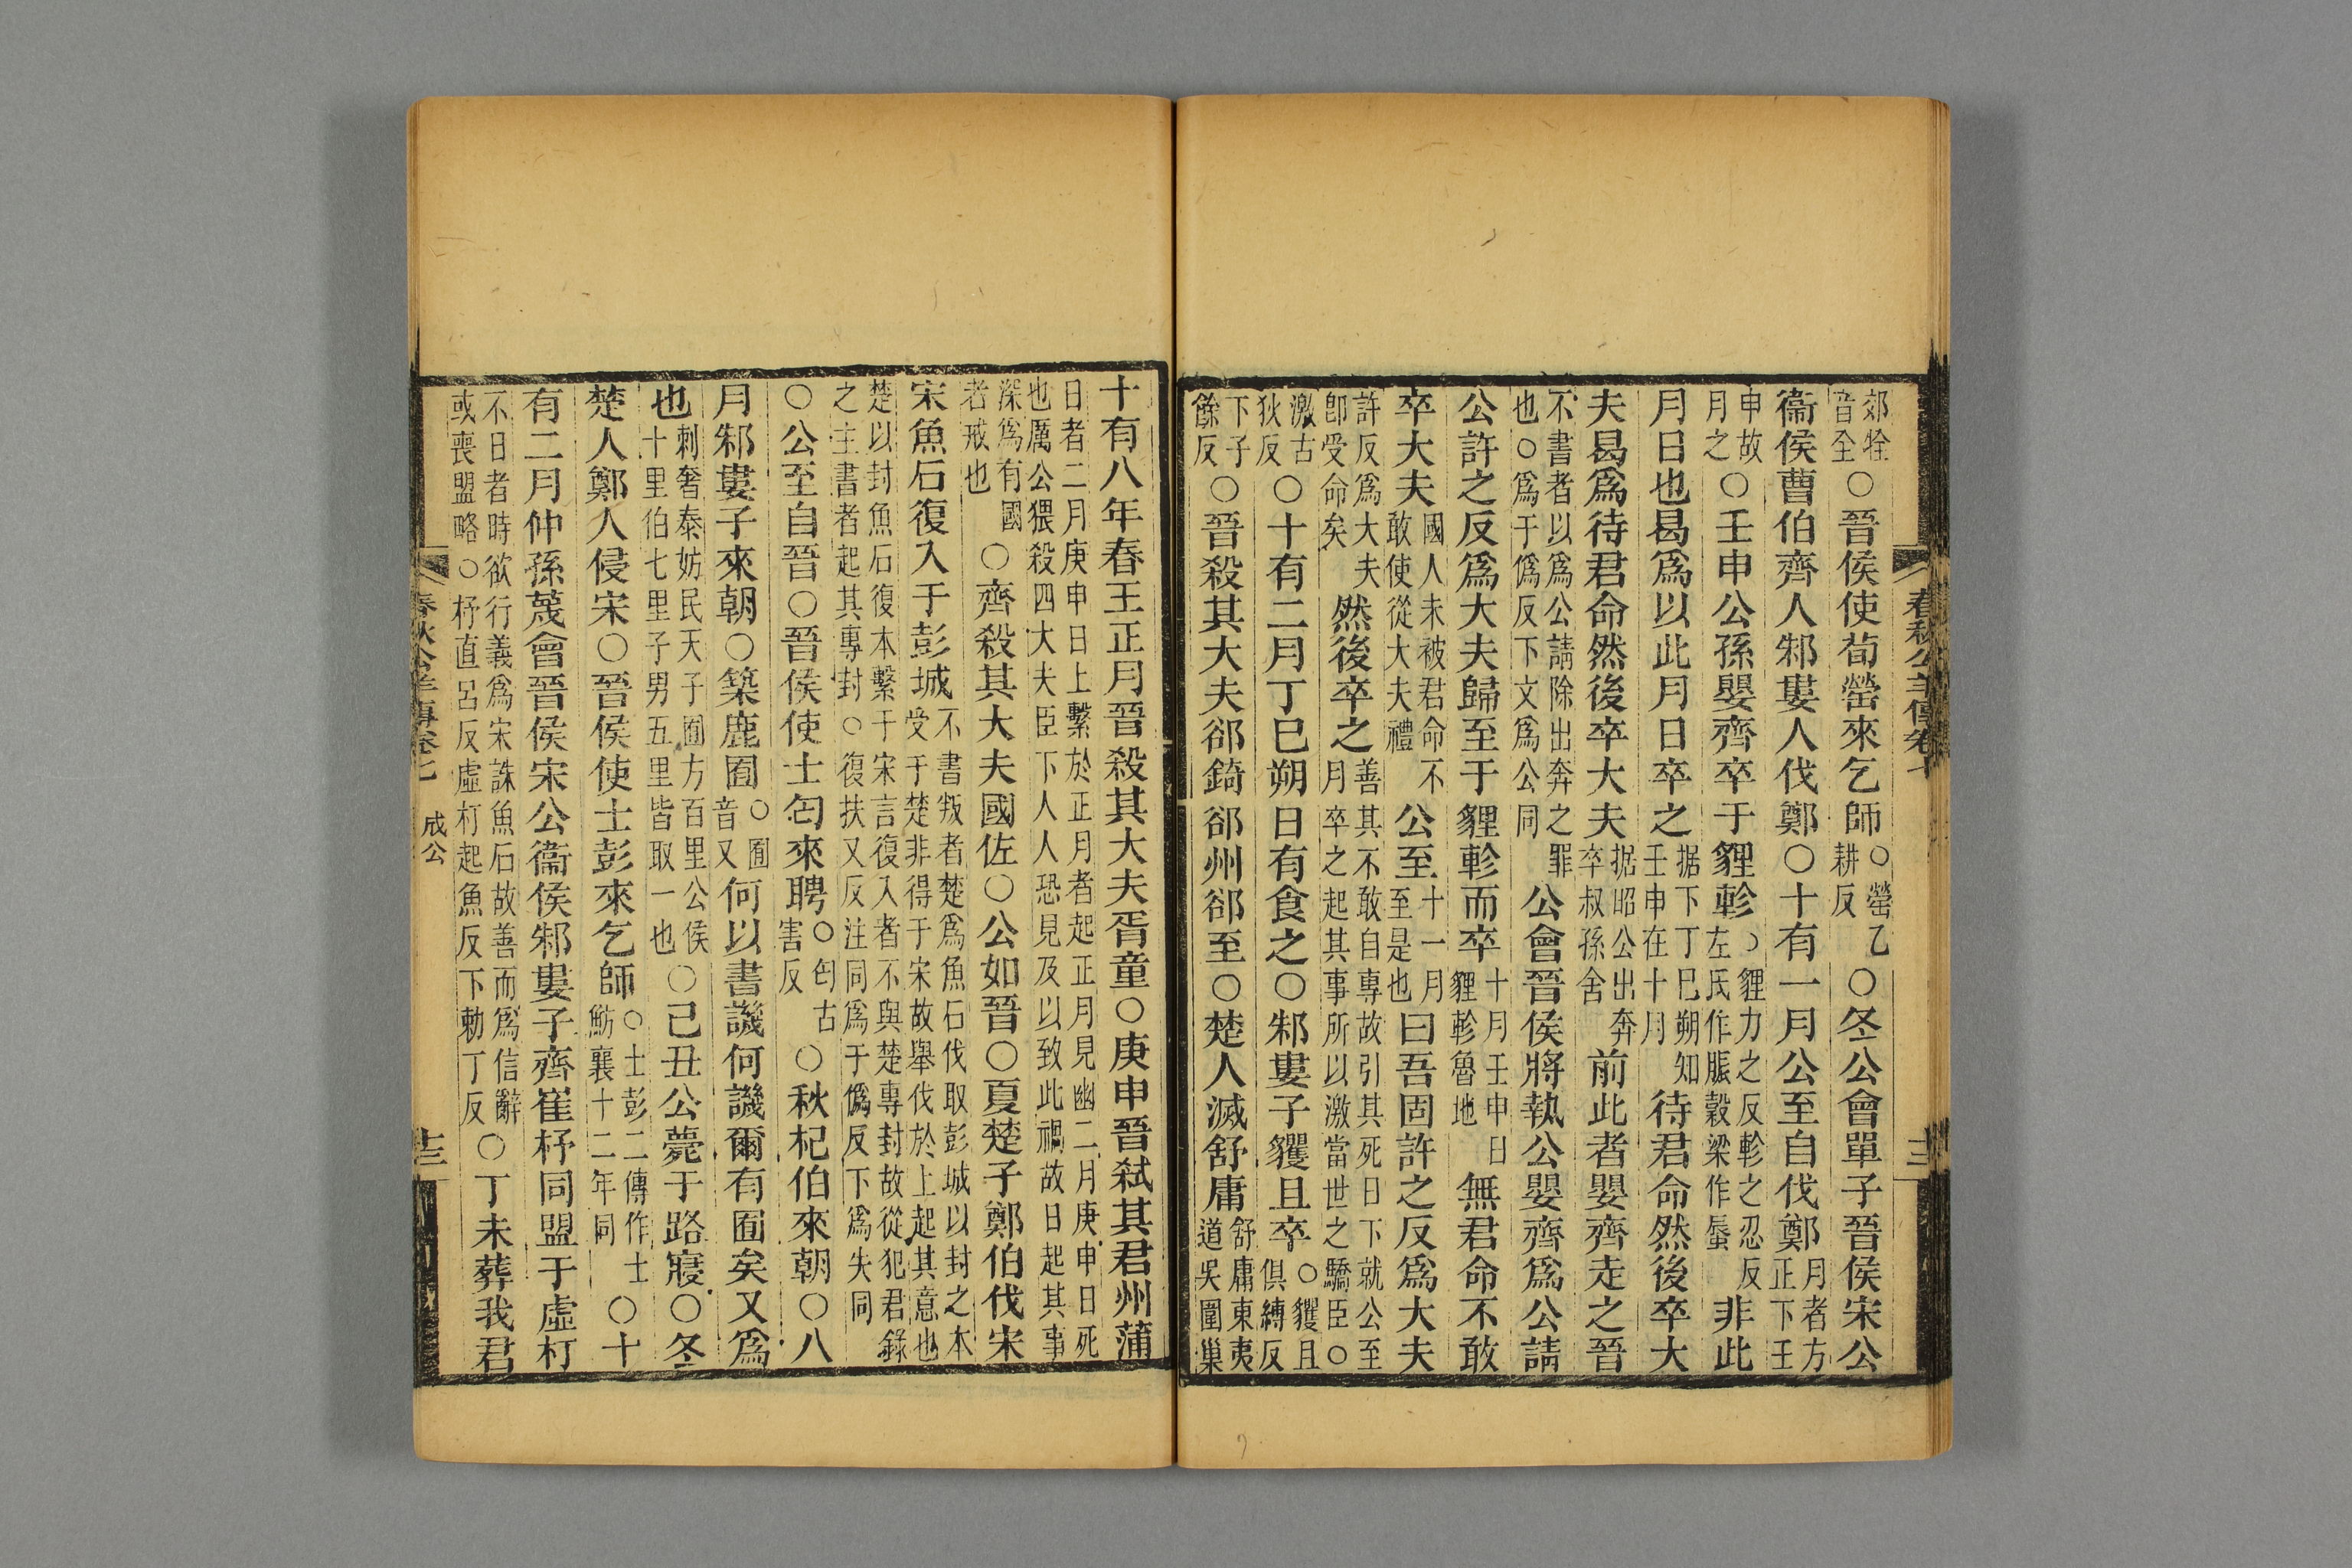 郊牷音全○晉侯使荀罃來乞師○罃乙耕反○冬公會單子晉侯宋公
衞侯曹伯齊人邾婁人伐鄭○十有一月公至自伐鄭月者方正下壬
申故月之○壬申公孫嬰齊卒于貍軫○貍力之反軫之忍反左氏作脤穀梁作蜃非此
月日也曷爲以此月日卒之据下丁巳朔知壬申在十月待君命然後卒大
夫曷爲待君命然後卒大夫据昭公出奔卒叔孫舍前此者嬰齊走之晉
不書者以爲公請除出奔之罪也○爲于僞反下文爲公同公會晉侯將執公嬰齊爲公請
公許之反爲大夫歸至于貍軫而卒十月壬申日貍軫魯地無君命不敢
卒大夫國人未被君命不敢使從大夫禮公至十一月至是也曰吾固許之反爲大夫
許反爲大夫卽受命矣然後卒之善其不敢自專故引其死日下就公至月卒之起其事所以激當世之驕臣○
激古狄反○十有二月丁巳朔日有食之○邾婁子貜且卒○貜且俱縛反
下子餘反○晉殺其大夫郤錡郤州郤至○楚人滅舒庸舒庸東夷道吳圍巢
春秋公羊傳卷七
十二
十有八年春王正月晉殺其大夫胥童○庚申晉弑其君州蒲
日者二月庚申日上繫於正月者起正月見幽二月庚申日死也厲公猥殺四大夫臣下人人恐見及以致此禍故日起其事
深爲有國者戒也○齊殺其大夫國佐○公如晉○夏楚子鄭伯伐宋
宋魚石復入于彭城不書叛者楚爲魚石伐取彭城以封之本受于楚非得于宋故舉伐於上起其意也
楚以封魚石復本繫于宋言復入者不與楚專封故從犯君錄之主書者起其專封○復扶又反注同爲于僞反下爲失同
○公至自晉○晉侯使士匄來聘○匄古害反○秋杞伯來朝○八
月邾婁子來朝○築鹿囿○囿音又何以書譏何譏爾有囿矣又爲
也刺奢泰妨民天子囿方百里公侯十里伯七里子男五里皆取一也○己丑公薨于路寢○冬
楚人鄭人侵宋○晉侯使士彭來乞師○士彭二傳作士魴襄十二年同○十
有二月仲孫蔑會晉侯宋公衞侯邾婁子齊崔杼同盟于虛朾
不日者時欲行義爲宋誅魚石故善而爲信辭或喪盟略○杼直呂反虛朾起魚反下勅丁反○丁未葬我君
春秋公羊傳卷七 成公
十三